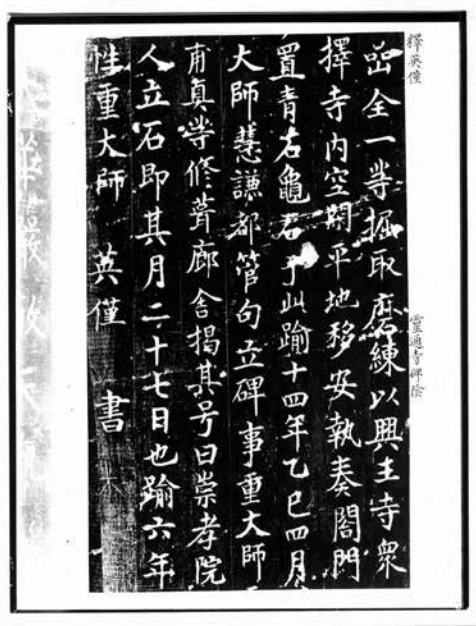 釋英僅
靈通寺碑陰
嵒全一等掘取磨練以興王寺衆
擇寺内空閑平地移安執奏閤門
置青石龜石于此踰十四年乙巳四月
大師慧謙都管句立碑事重大師
甫真等修葺廊舍揭其号曰崇孝院
人立石即其月二十七日也踰六年
性重大師 英僅 書